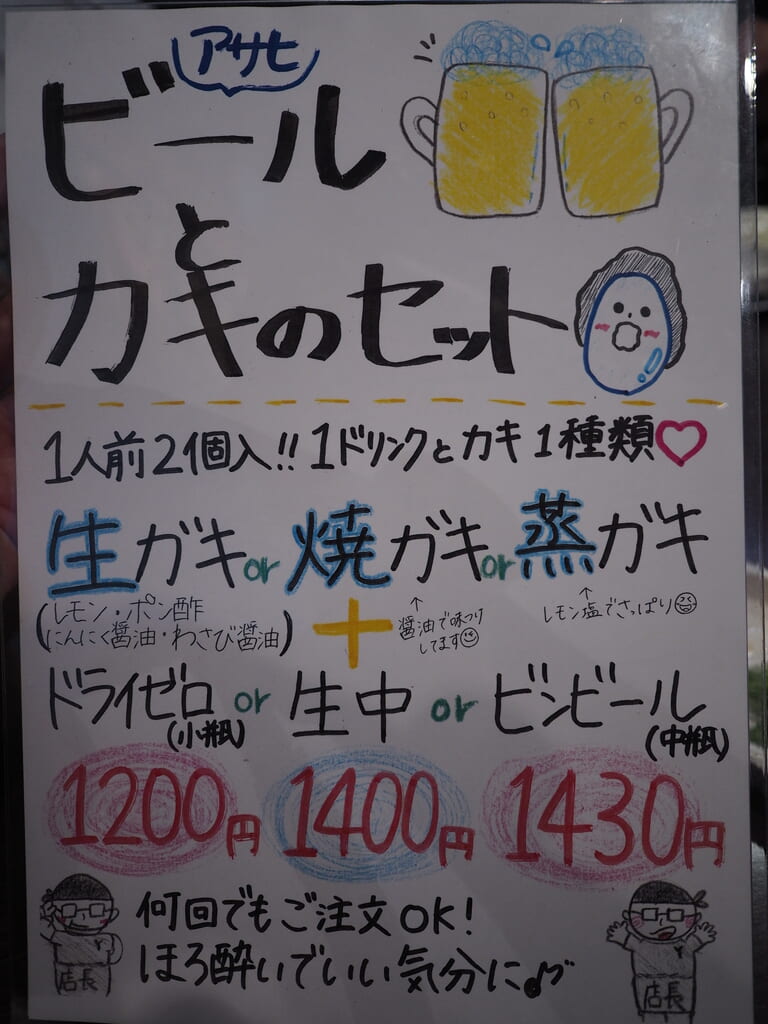 アサヒ
ビール
と
カキのセット
1人前2個入!! 1ドリンクとカキ1種類♡
生ガキ or 焼ガキ or 蒸ガキ
(レモン・ポン酢
にんにく醤油・わさび醤油)
↑
醤油で味つけ
してます
↑
レモン塩でさっぱり
+
ドライゼロ or 生中 or ビンビール
(小瓶)
(中瓶)
1200円 1400円 1430円
何回でもご注文OK!
ほろ酔いでいい気分に♪
店長
店長